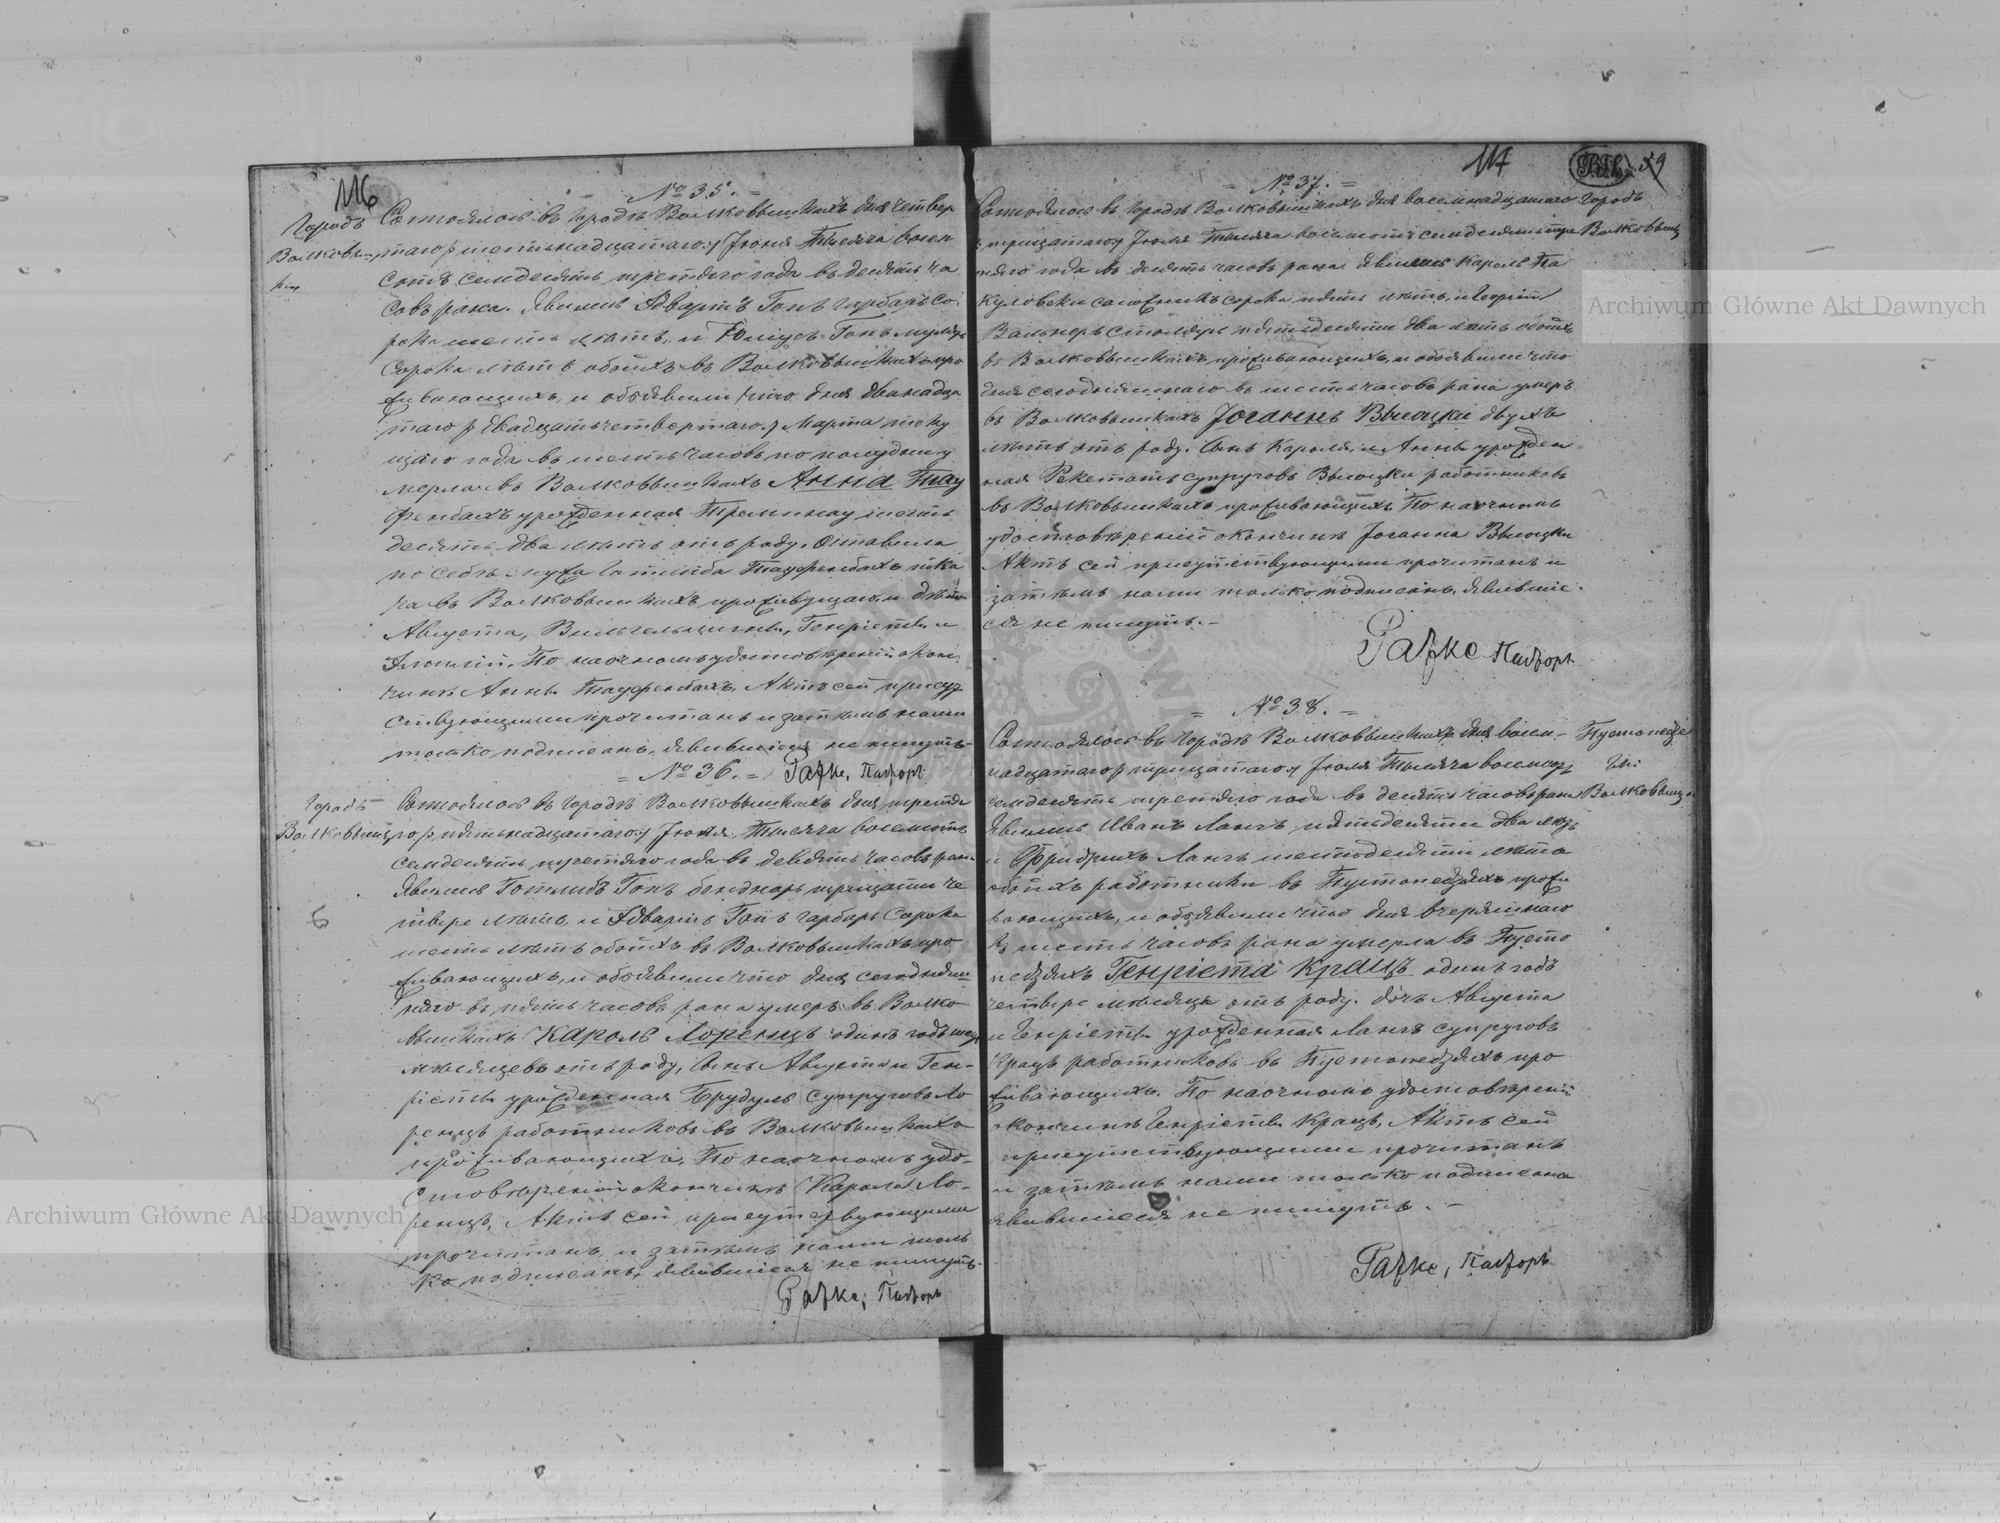 116
№ 35.
Городъ Состоялось въ городѣ Волковышкахъ дня четвер
Волковыш- таго /шестьнадцатаго/ Іюня Тысяча восем
ки сотъ семдесятъ третяго года въ десять ча
совъ рана. Явились Эдвартъ Гопъ гарбаръ со
рока шесть лѣтъ, и Юліусъ Гопъ
сорока лѣтъ обоихъ въ Волковышкахъ про
живающихъ, и объявили что дня двѣнадца
таго /двадцатьчетвертаго/ Марта теку
щаго года въ шесть часовъ по полудни у
мерла въ Волковышкахъ Анна Тау
фенбахъ урожденная шесть
десятъ два лѣтъ отъ роду. Оставила
по себѣ мужа Готлиба Тауфенбахъ тка
ча въ Волковышкахъ проживущаго и дѣти
Августа, Вильгельмину, Генріету и
По наочномъ удостовѣреніи о кон
чинѣ Анны Тауфенбахъ, Актъ сей присут
ствующими прочитанъ и затѣмъ нами
только подписанъ, явившіеся не пишутъ.
№ 36. Пасторъ
Городъ Состоялось въ городѣ Волковышкахъ дня третя
Волковышки го /пятьнадцатаго/ Іюля Тысяча восемсотъ
семдесятъ третяго года въ девять часовъ рана
Явился Готлибъ Гопъ беднаръ тридцати че
тыре лѣтъ, и Эдвартъ Гопъ гарбаръ сорока
шесть лѣтъ обоихъ въ Волковышкахъ про
живающихъ, и объявили что дня сегодняш
няго въ пять часовъ рана умеръ въ Волко
вышкахъ Кароль Лоренцъ одинъ годъ
мѣсяцевъ отъ роду, сынъ Августа и Ген-
ріеты урожденная Брудулъ супруговъ Ло
ренцъ работниковъ въ Волковышкахъ
проживающихъ. По наочномъ удо-
стовѣреніи о кончинѣ Кароля Ло-
ренцъ, Актъ сей присутствующими
прочитанъ, и затѣмъ нами толь
ко подписанъ, явившіеся не пишутъ.
Пасторъ
117
59
№ 37.
Состоялось въ городѣ Волковышкахъ дня восемнадцатаго Городъ
/тридцатаго/ Іюля Тысяча восемсотъ семдесятъ тре Волковышки
тяго года въ десять часовъ рана. Явились Кароль
сорока пять лѣтъ, и Георгій
Вальнеръ столяръ пятьдесяти два лѣтъ обоихъ
въ Волковышкахъ проживающихъ, и объявили что
дня сегодняшняго въ шесть часовъ рана умеръ
въ Волковышкахъ Іоганнъ Высоцки двухъ
лѣтъ отъ роду. Сынъ Кароля, и Анны урожден
ная супруговъ Высоцки работниковъ
въ Волковышкахъ проживающихъ. По наочномъ
удостовѣреніи о кончинѣ Іоганна Высоцки
Актъ сей присутствующими прочитанъ и
затѣмъ нами только подписанъ, явившіе-
ся не пишутъ.
Пасторъ
№ 38.
Состоялось въ городѣ Волковышкахъ дня восем-
надцатаго /тридцатаго/ Іюля Тысяча восемсотъ
семдесятъ третяго года въ десять часовъ рана Волковышки
Явились Иванъ Лангъ пятьдесяти два лѣтъ
и Фридрихъ Лангъ шестьдесяти лѣтъ
обоихъ работники въ прожи
вающихъ, и объявили что дня вчерашняго
въ шесть часовъ рана умерла въ Пусто
Генріета Крацъ одинъ годъ
четыре мѣсяца отъ роду. дочъ Августа
и Генріеты урожденная Лангъ супруговъ
Крацъ работниковъ въ про
живающихъ. По наочномъ удостовѣреніи
о кончинѣ Генріеты Крацъ, Актъ сей
присутствующими прочитанъ
и затѣмъ нами только подписанъ
явившіеся не пишутъ.
Пасторъ
Archiwum Główne Akt Dawnych
Archiwum Główne Akt Dawnych